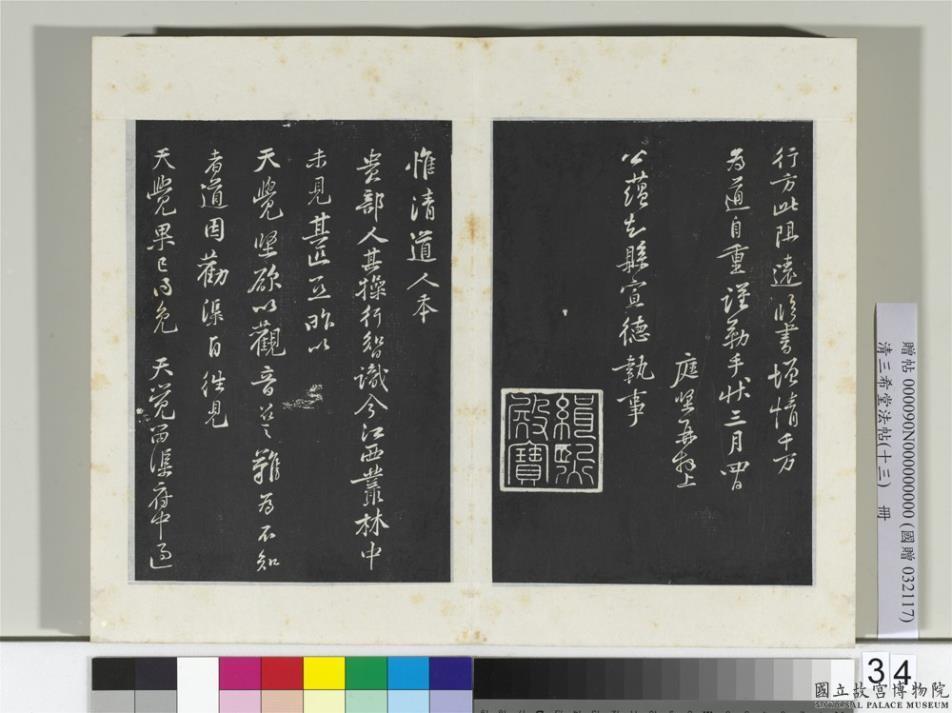 行方此阻遠脩書增情千万
為道自重謹勒手狀三月四日
庭堅再拜上
公蘊知縣宣德執事
緝熙
殿寶
惟清道人本
貴部人其操行智識今江西叢林中
未見其匹亞昨以
天覺堅欲以觀音召之難為不知
者道因勸渠自往見
天覺果已得免 天覺留渠府中過
贈帖 000090N000000000 (國贈 032117)
清三希堂法帖(十三) 冊
34
國立故宮博物院
NATIONAL PALACE MUSEUM